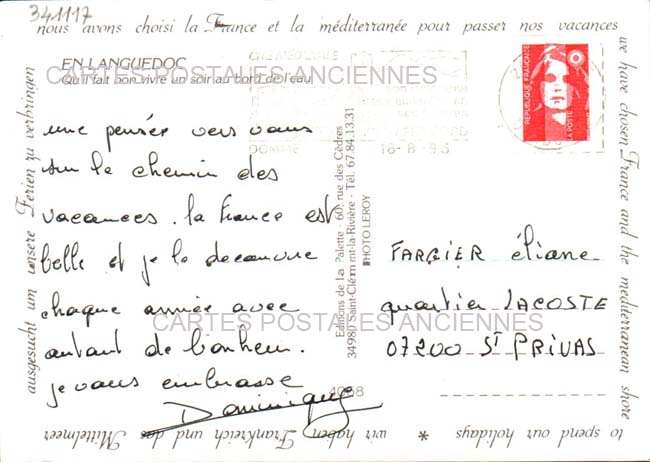 341117
nous avons choisi la France et la méditerranée pour passer nos vacances
we have chosen France and the mediterranean shore
to spend our holidays * wir haben Frankreich und das Mittelmeer
ausgesucht um unsere Ferien zu verbringen
EN LANGUEDOC
Qu'il fait bon vivre un soir au bord de l'eau
CARTES POSTALES ANCIENNES
une pensée vers vous
sur le chemin des
vacances. la France est
belle et je le decouvre
chaque année avec
autant de bonheur.
je vous embrasse
Dominique
Editions de la Palette - 60, rue des Cèdres
34980 Saint-Clément-la-Rivière - Tél. 67.84.13.31
PHOTO LEROY
4068
DOME
18-8-93
REPUBLIQUE FRANÇAISE
LA POSTE
FARGIER éliane
quartier LACOSTE
07200 St PRIVAS
CARTES POSTALES ANCIENNES